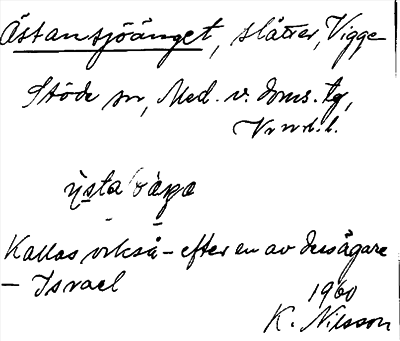 Östansjöänget, slåtter, Vigge
Stöde sn, Med. v. doms. tg,
Vnrd. l.
Kallas också – efter en av dess ägare
– Israel
1960
K. Nilsson